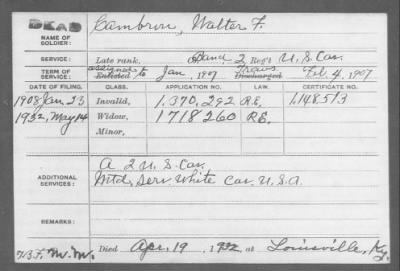 DEAD
NAME OF SOLDIER: Cambron, Walter F.
SERVICE: Late rank, Band 2 Reg't U.S. Cav.
TERM OF SERVICE: Enlisted assigned to Jan, 1907 Discharged Trans Feb. 4, 1907
DATE OF FILING. CLASS. APPLICATION NO. LAW. CERTIFICATE NO.
1908 Jan. 23 Invalid, 1,370,292 R.E. 1,148,513
1932, May 14 Widow, 1718260 R.E.
Minor,
ADDITIONAL SERVICES: A 2 U.S. Cav.
Mtd. Serv. White Cav. U.S.A.
REMARKS:
Died Apr. 19, 1932, at Louisville, Ky.